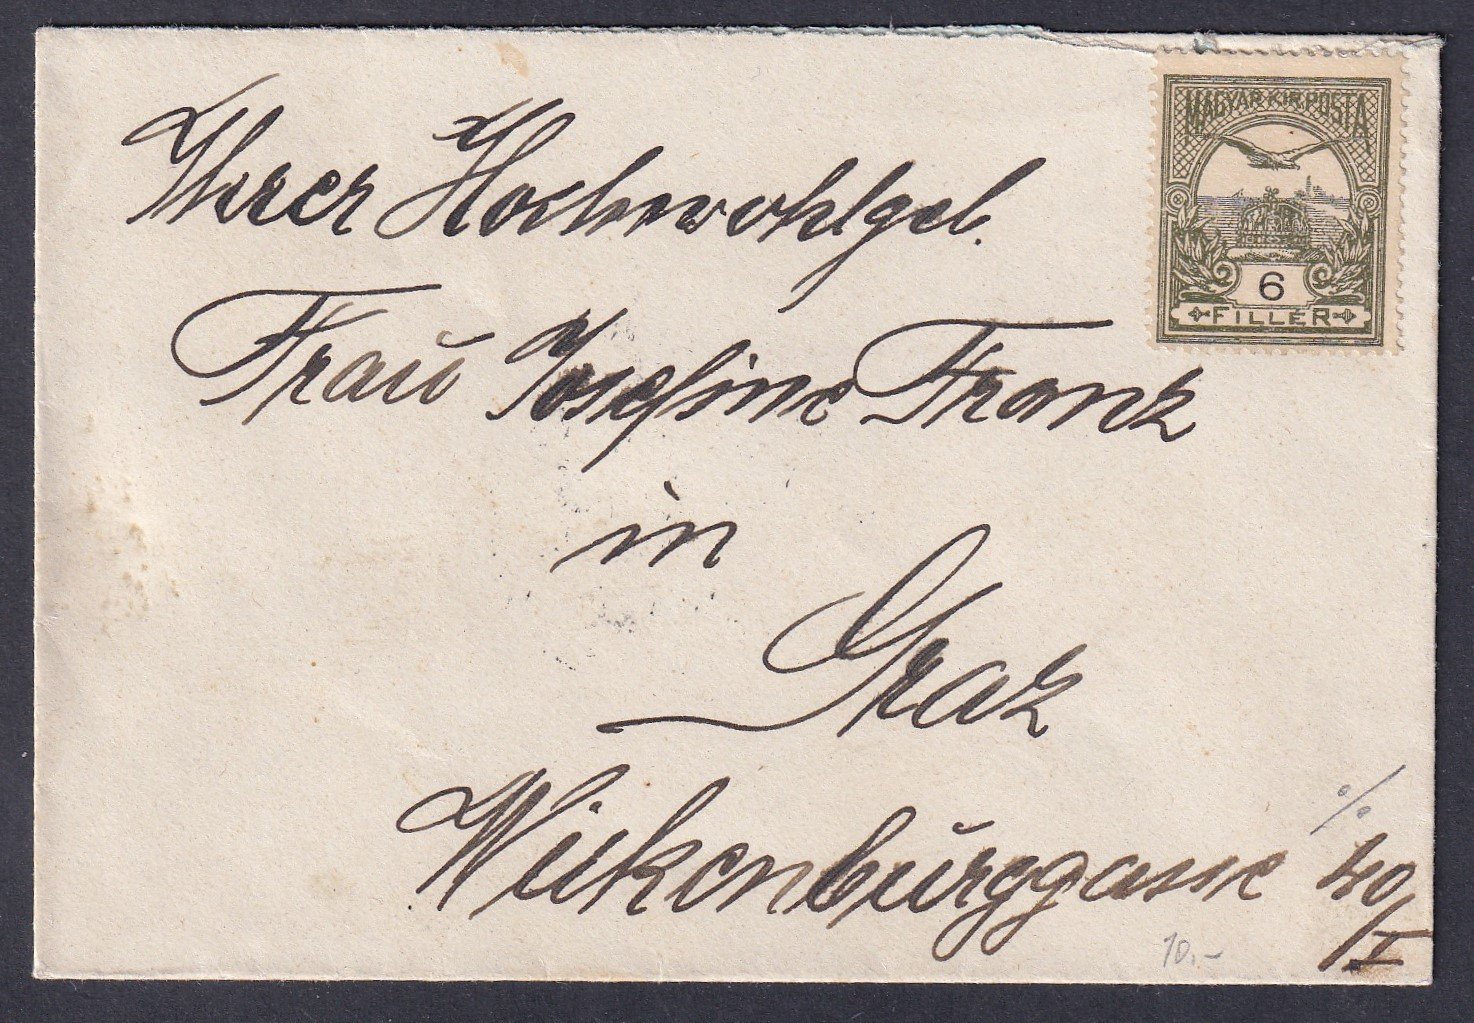 Ihrer Hochwohlgeb.
MAGYAR KIR. POSTA
6
FILLÉR
Frau Josefine Franz
in
Graz
Wickenburggasse 40/I
10.-